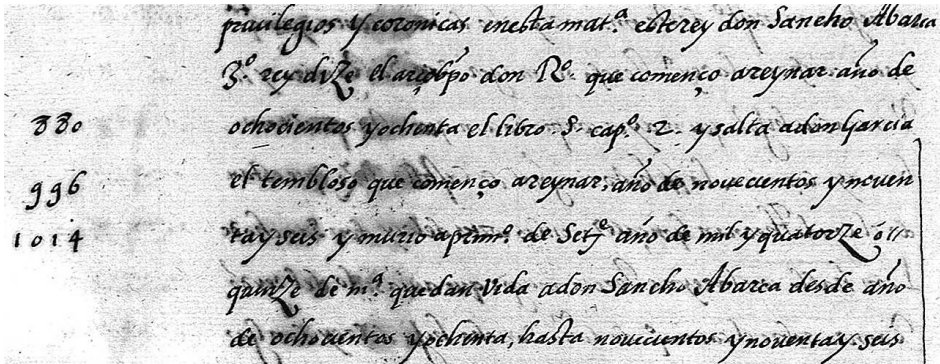 priuilegios y coronicas en esta mat.ª este rey don Sancho Abarca
3.º rey dize el arçobpõ don R.º que començo a reynar año de
880 ochocientos y ochenta el libro .5. cap.º .2. y salta a don Garcia
996 el tembloso que començo a reynar, año de nouecientos y ncuen
1014 ta y seis y murio a prim.º de Set.e año de mil y quatorze ó
quinze de m.ª que dan vida a don Sancho Abarca desde año
de ochocientos y ochenta, hasta nouecientos y nouenta y seis